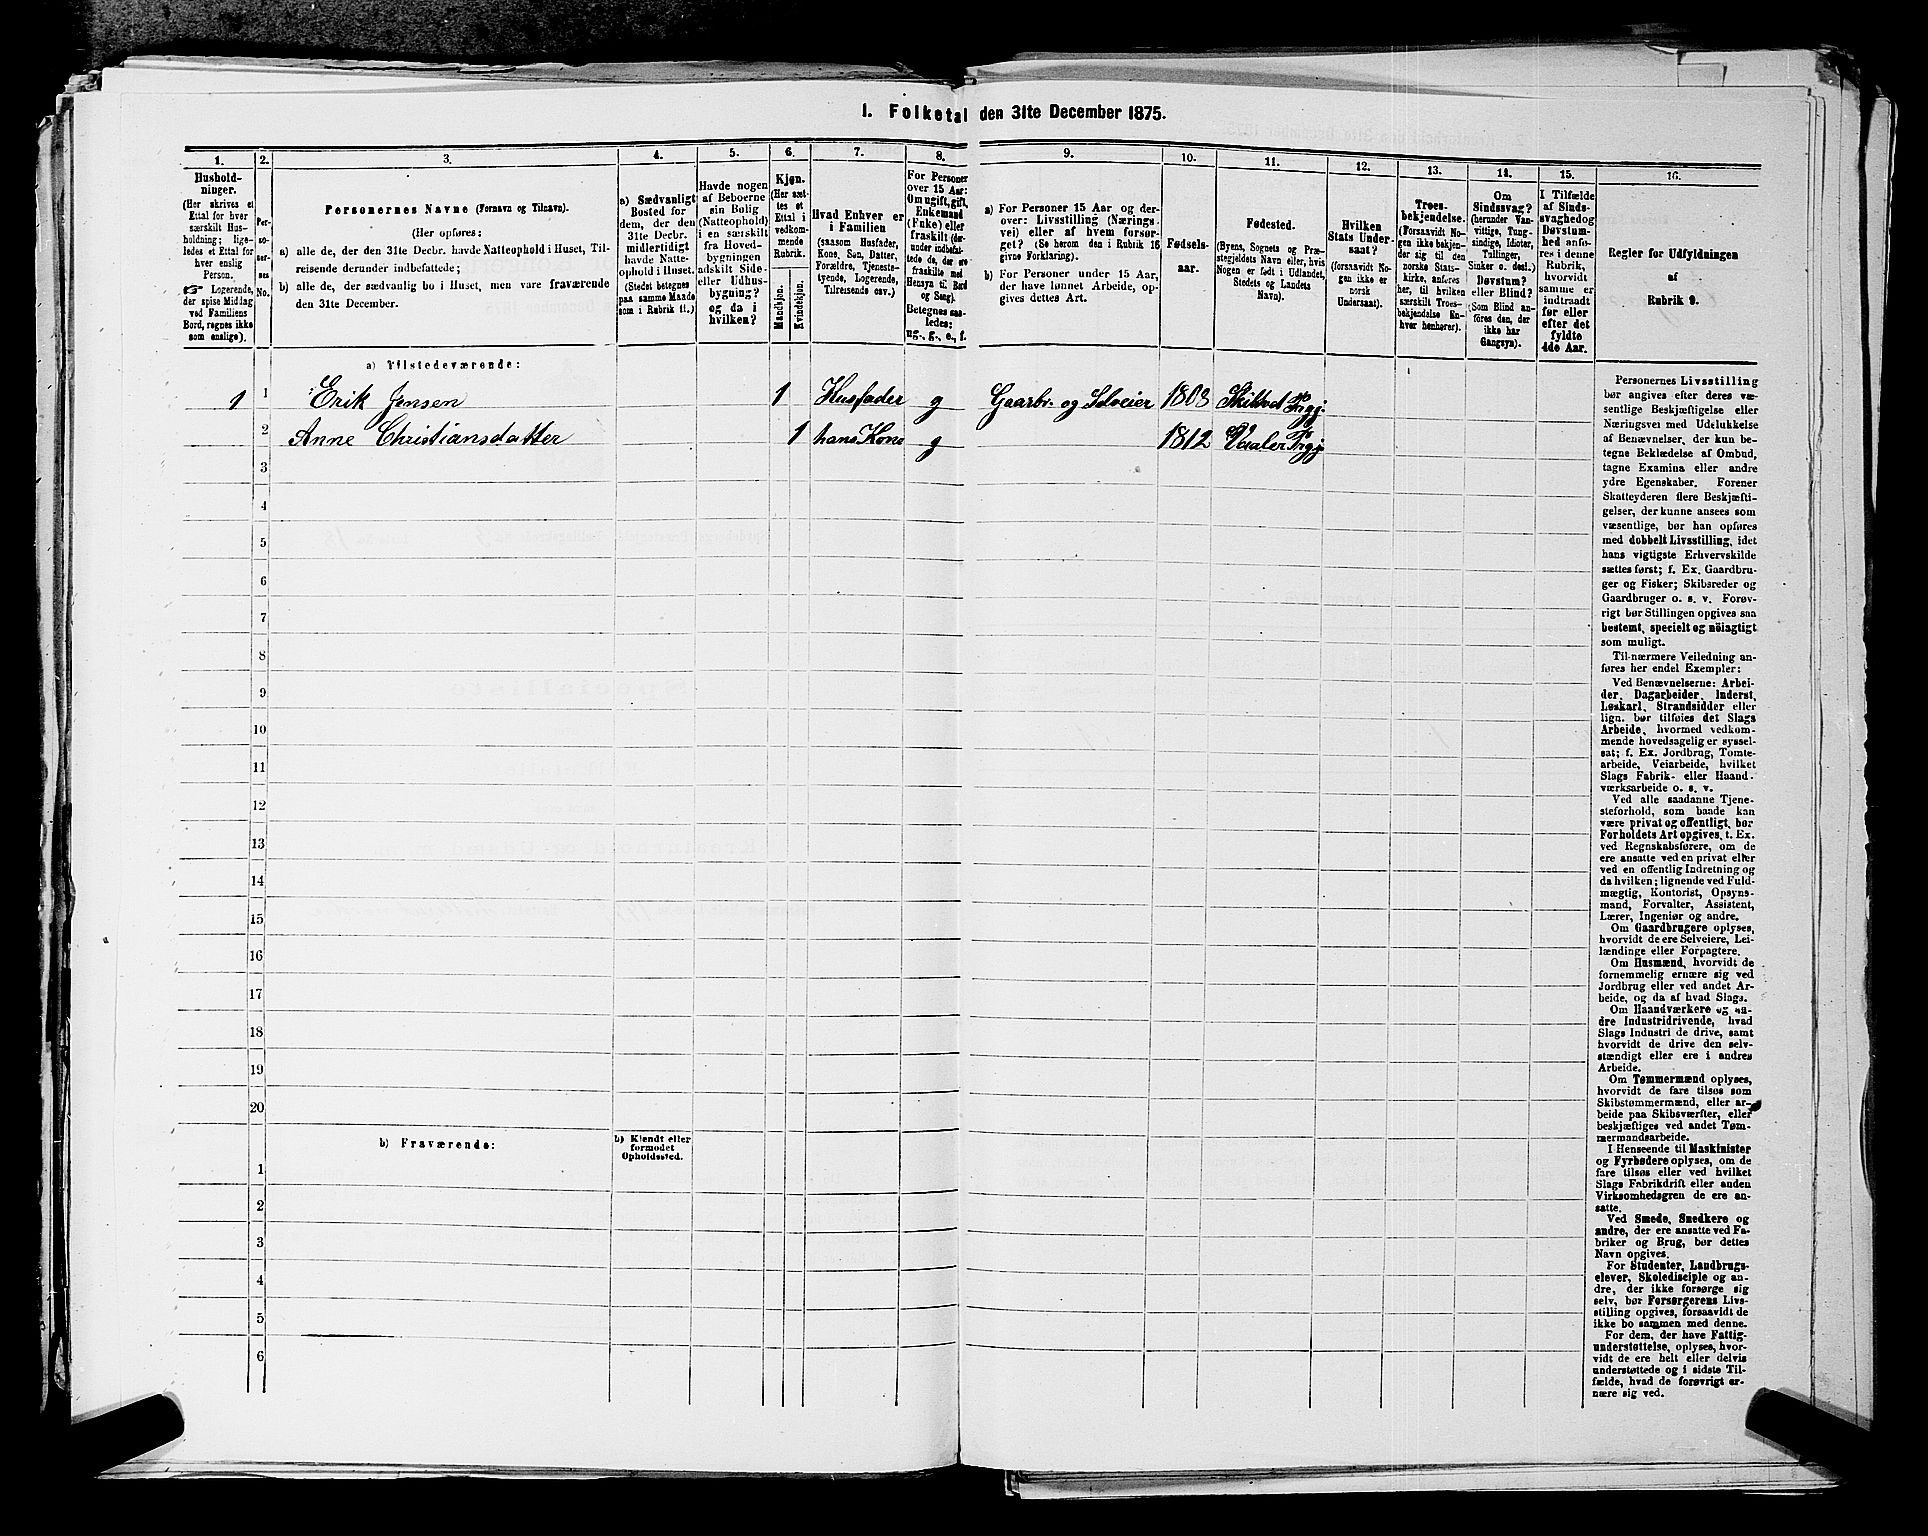 1. Folketal den 31te December 1875.
1. 2. 3. 4. 5. 6. 7. 8. 9. 10. 11. 12. 13. 14. 15. 16.
Hushold-
ninger.
(Her skrives et
Ettal for hver
særskilt Hus-
holdning; lige-
ledes et Ettal for
hver enslig
Person.
☞ Logerende,
der spise Middag
ved Familiens
Bord, regnes ikke
som enslige).
Per-
so-
ner-
nes
No.
Personernes Navne (Fornavn og Tilnavn).
(Her opføres:
a) alle de, der den 31te Decbr. havde Natteophold i Huset, Til-
reisende derunder indbefattede;
b) alle de, der sædvanlig bo i Huset, men vare fraværende
den 31te December.
a) Sædvanligt
Bosted for
dem, der den
31te Decbr.
midlertidigt
havde Natte-
ophold i Huset.
(Stedet betegnes
paa samme Maade
som i Rubrik 11.)
Havde nogen
af Beboerne
sin Bolig
(Natteophold)
i en særskilt
fra Hoved-
bygningen
adskilt Side-
eller Udhus-
bygning?
og da i
hvilken?
Kjøn.
(Her sæt-
tes et
Ettal i
vedkom-
mende
Rubrik.
Mandkjøn.
Kvindekjøn.
Hvad Enhver er
i Familien
(saasom Husfader,
Kone, Søn, Datter,
Forældre, Tjeneste-
tyende, Logerende,
Tilreisende osv.)
For Personer
over 15 Aar:
Om ugift, gift,
Enkemand
(Enke) eller
fraskilt (der-
under indbefat-
tede de, der ere
fraskilte med
Hensyn til Bord
og Seng).
Betegnes saa-
ledes:
ug., g., e., f.
a) For Personer 15 Aar og der-
over: Livsstilling (Nærings-
vei) eller af hvem forsør-
get? (Se herom den i Rubrik 16
givne Forklaring).
b) For Personer under 15 Aar,
der have lønnet Arbeide, op-
gives dettes Art.
Fødsels-
aar.
Fødested.
(Byens, Sognets og Præ-
stegjeldets Navn eller, hvis
Nogen er født i Udlandet,
Stedets og Landets
Navn).
Hvilken
Stats Under-
saat?
(forsaavidt No-
gen ikke er
norsk
Undersaat).
Troes-
bekjendelse.
(Forsaavidt No-
gen ikke bekjen-
der sig til den
norske Stats-
kirke, anføres
her, til hvilken
særskilt Troes-
bekjendelse En-
hver henhører).
Om
Sindssvag?
(herunder Van-
vittige, Tung-
sindige, Idioter,
Tullinger,
Sinker o. desl.)
Døvstum?
eller Blind?
(Som Blind an-
føres den, der
ikke har
Gangsyn).
I Tilfælde
af Sinds-
svaghed og
Døvstum-
hed anfø-
res i denne
Rubrik,
hvorvidt
samme er
indtraadt
før eller
efter det
fyldte
4de Aar.
Regler for Udfyldningen
af
Rubrik 9.
a) Tilstedeværende:
1 1 Erik Jensen 1 Husfader g Gaardbr. og Selveier 1803
2 Anne Christiansdatter 1 hans Kone g 1812 Vaaler Prgj
3
4
5
6
7
8
9
10
11
12
13
14
15
16
17
18
19
20
b) Fraværende:
b) Kjendt eller
formodet
Opholdssted.
1
2
3
4
5
6
Personernes Livsstilling
bør angives efter deres væ-
sentlige Beskjæftigelse eller
Næringsvei med Udelukkelse
af Benævnelser, der kun be-
tegne Beklædelse af Ombud,
tagne Examina eller andre
ydre Egenskaber. Forener
Skatteyderen flere Beskjæfti-
gelser, der kunne ansees som
væsentlige, bør han opføres
med dobbelt Livsstilling, idet
hans vigtigste Erhvervskilde
sættes først; f. Ex. Gaardbru-
ger og Fisker; Skibsreder og
Gaardbruger o. s. v. Forøv-
rigt bør Stillingen opgives saa
bestemt, specielt og nöiagtigt
som muligt.
Til nærmere Veiledning an-
føres her endel Exempler:
Ved Benævnelserne: Arbei-
der, Dagarbeider, Inderst,
Løskarl, Strandsidder eller
lign. bør tilføies det Slags
Arbeide, hvormed vedkom-
mende hovedsagelig er syssel-
sat; f. Ex. Jordbrug, Tomte-
arbeide, Veiarbeide, hvilket
Slags Fabrik- eller Haand-
værksarbeide o. s. v.
Ved alle saadanne Tjene-
steforhold, som baade kan
være privat og offentligt, bør
Forholdets Art opgives, t. Ex.
ved Regnskabsførere, om de
ere ansatte ved en privat eller
ved en offentlig Indretning og
da hvilken; lignende ved Fuld-
mægtig, Kontorist, Opsyns-
mand, Forvalter, Assistent,
Lærer, Ingeniør og andre.
Om Gaardbrugere oplyses,
hvorvidt de ere Selveiere, Lei-
lændinge eller Forpagtere.
Om Husmænd, hvorvidt de
fornemmelig ernære sig ved
Jordbrug eller ved andet Ar-
beide, og da af hvad Slags.
Om Haandværkere og an-
dre Industridrivende, hvad
Slags Industri de drive, samt
hvorvidt de drive den selv-
stændigt eller ere i andres
Arbeide.
Om Tømmermænd oplyses,
hvorvidt de fare tilsøs som
Skibstømmermænd, eller ar-
beide paa Skibsværfter, eller
beskjæftiges ved andet Tøm-
mermandsarbeide.
I Henseende til Maskinister
og Fyrbødere oplyses, om de
fare tilsøs eller ved hvilket
Slags Fabrikdrift eller anden
Virksomhedsgren de ere an-
satte.
Ved Smede, Snedkere og
andre, der ere ansatte ved Fa-
briker og Brug, bør dettes
Navn opgives.
For Studenter, Landbrugs-
elever, Skoledisciple og an-
dre, der ikke forsørge sig
selv, bør Forsørgerens Livs-
stilling opgives, forsaavidt de
ikke bo sammen med denne.
For dem, der have Fattig-
understøttelse, oplyses, hvor-
vidt de ere helt eller delvis
understøttede og i sidste Til-
fælde, hvad de forøvrigt er-
nære sig ved.